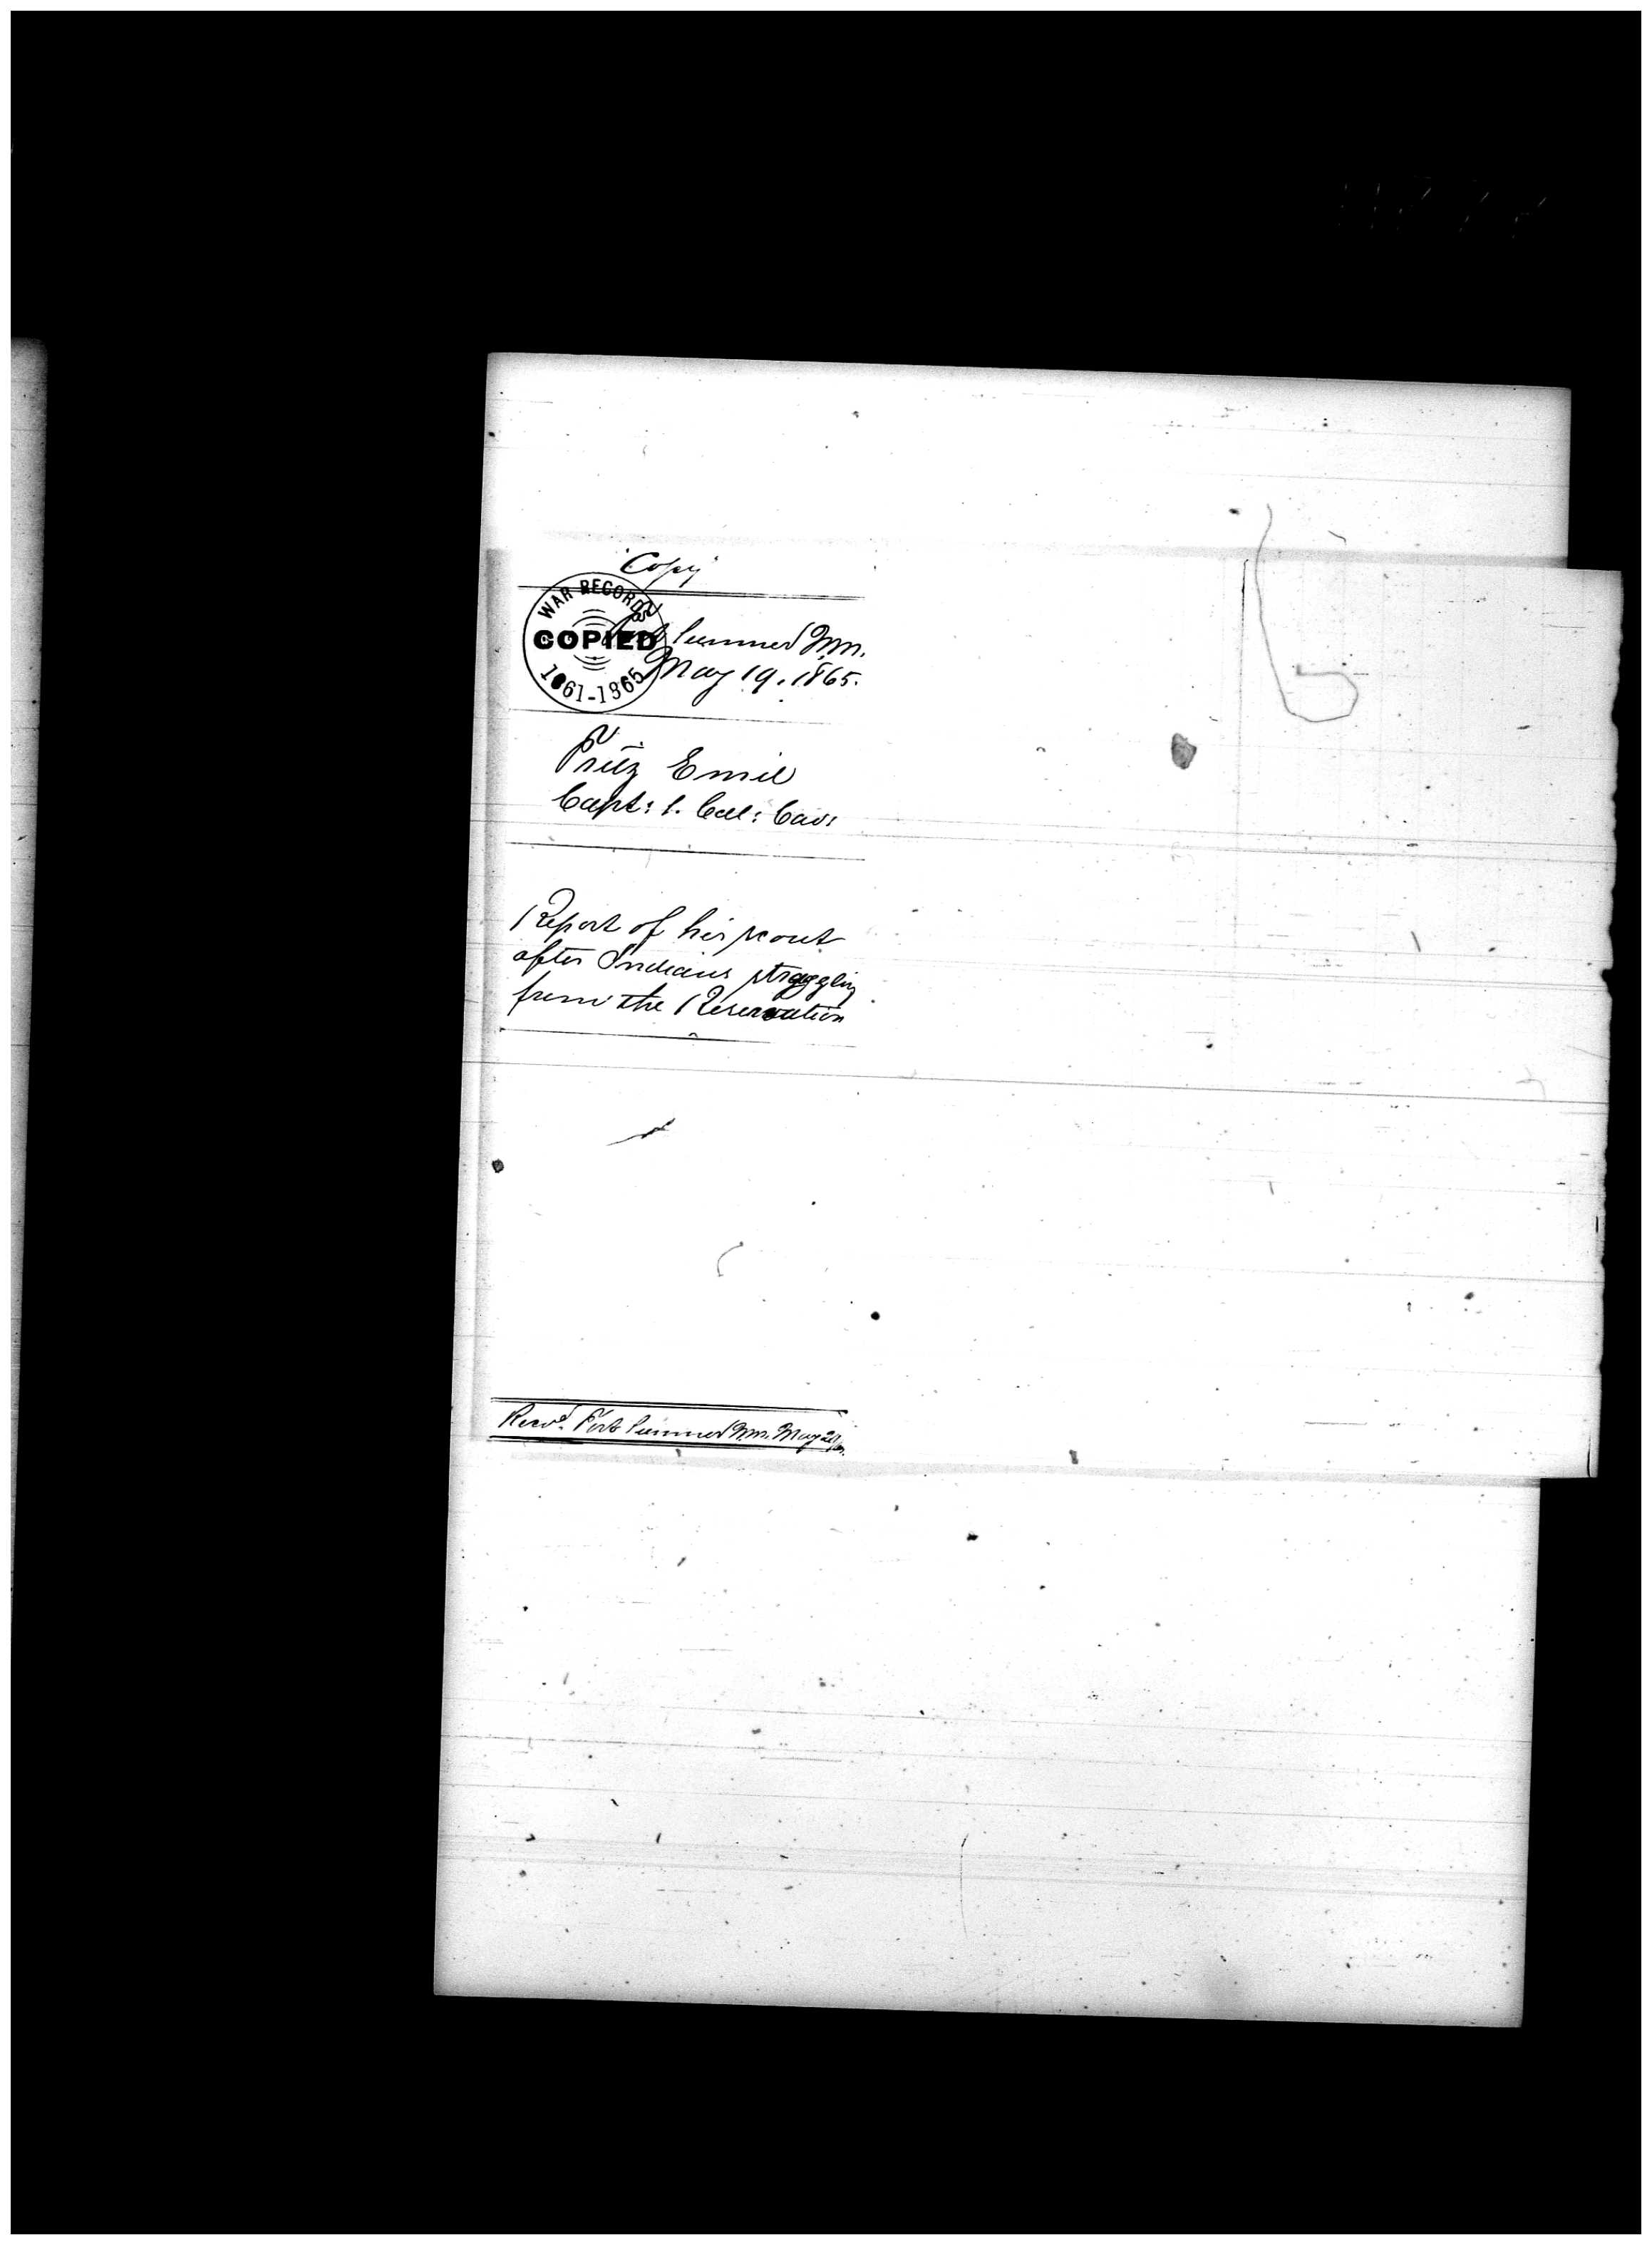 Copy
WAR RECORDS
COPIED
1861-1865
Fort Sumner N.M.
May 19. 1865.
Fritz Emil
Capt: 1. Cal: Cav:
Report of his scout
after Indians straggling
from the Reservation
Recvd. Fort Sumner N.M. May